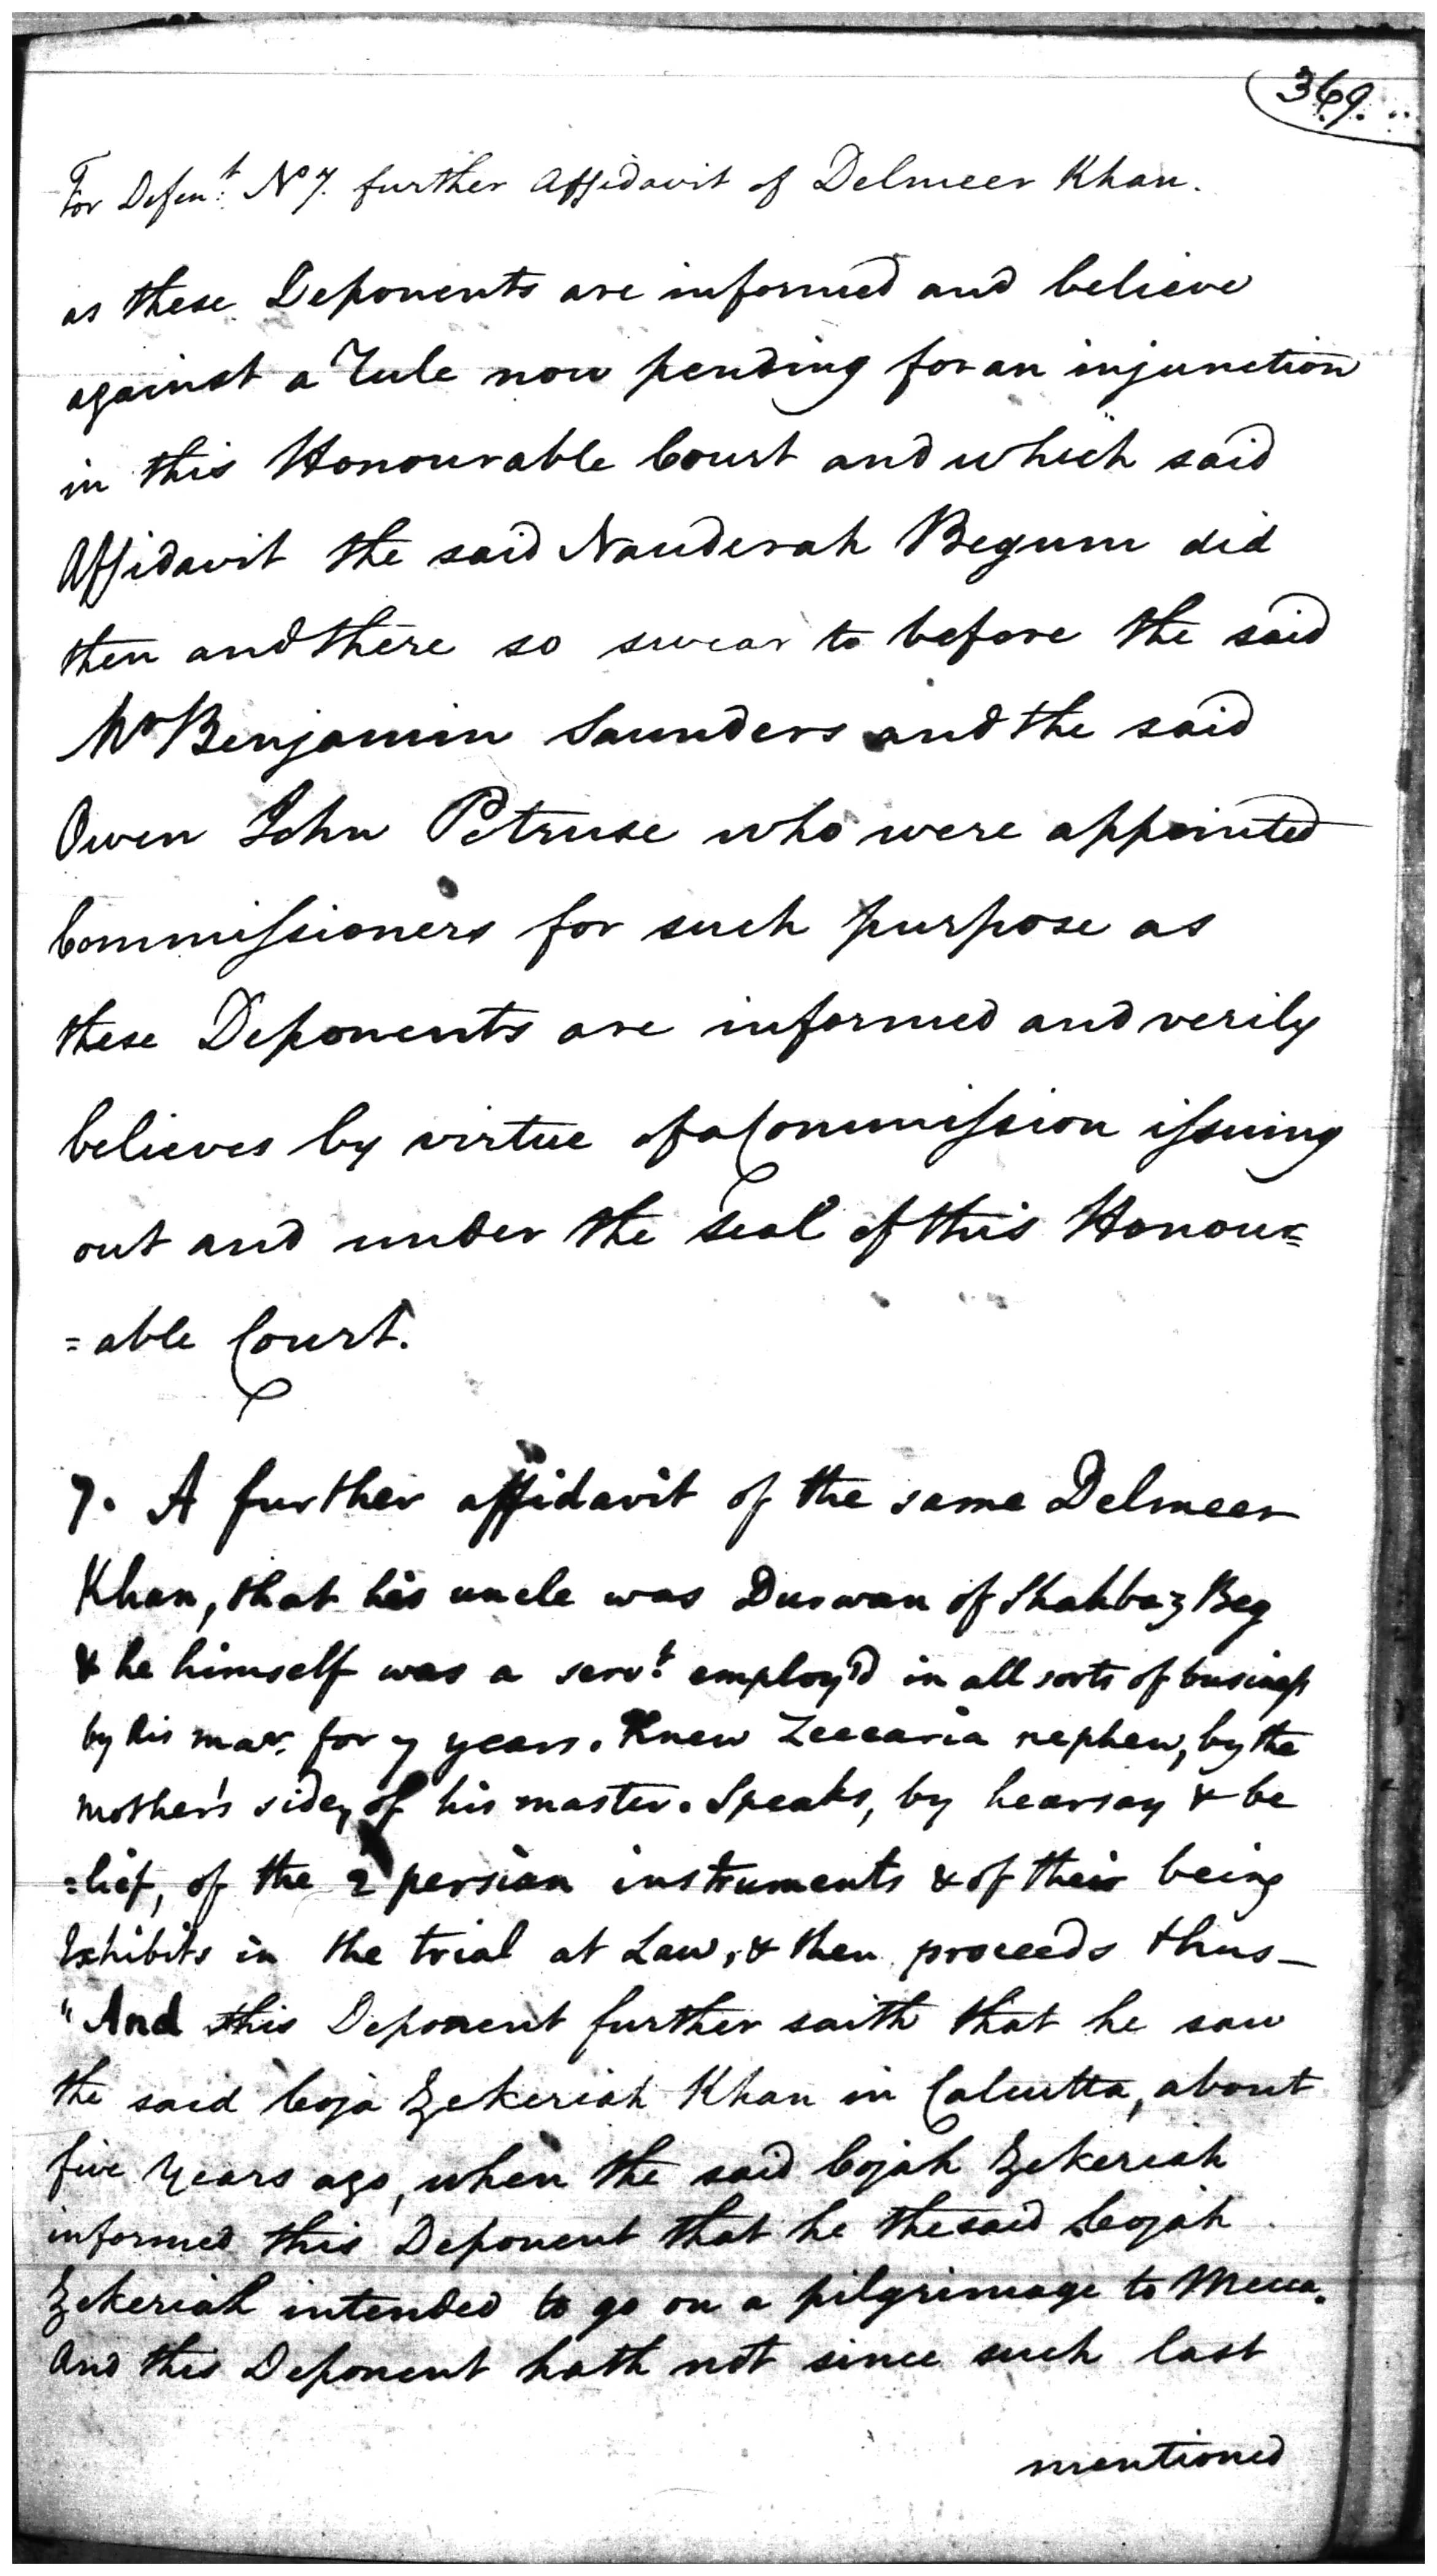 369.
For Defen.t No 7. further Affidavit of Delmeer Khan.
as these Deponents are informed and believe
against a Rule now pending for an injunction
in this Honourable Court and which said
Affidavit the said Nauderah Begum did
then and there so swear to before the said
Mr Benjamin Saunders and the said
Owen John Petruse who were appointed
Commissioners for such purpose as
these Deponents are informed and verily
believes by virtue of a Commission issuing
out and under the Seal of this Honour=
=able Court.
7. A further affidavit of the same Delmeer
Khan, that his uncle was Durwan of Shahbaz Beg
& he himself was a serv.t employ'd in all sorts of business
by his mar. for 7 years. Knew Zeccaria nephew, by the
mother's side, of his master. Speaks, by hearsay & be
=lief, of the 2 persian instruments & of their being
Exhibits in the trial at Law, & then proceeds thus—
"And this Deponent further saith that he saw
the said Coja Zekeriah Khan in Calcutta, about
five years ago, when the said Cojah Zekeriah
informed this Deponent that he the said Cojah
Zekeriah intended to go on a pilgrimage to Mecca.
And this Deponent hath not since such last
mentioned